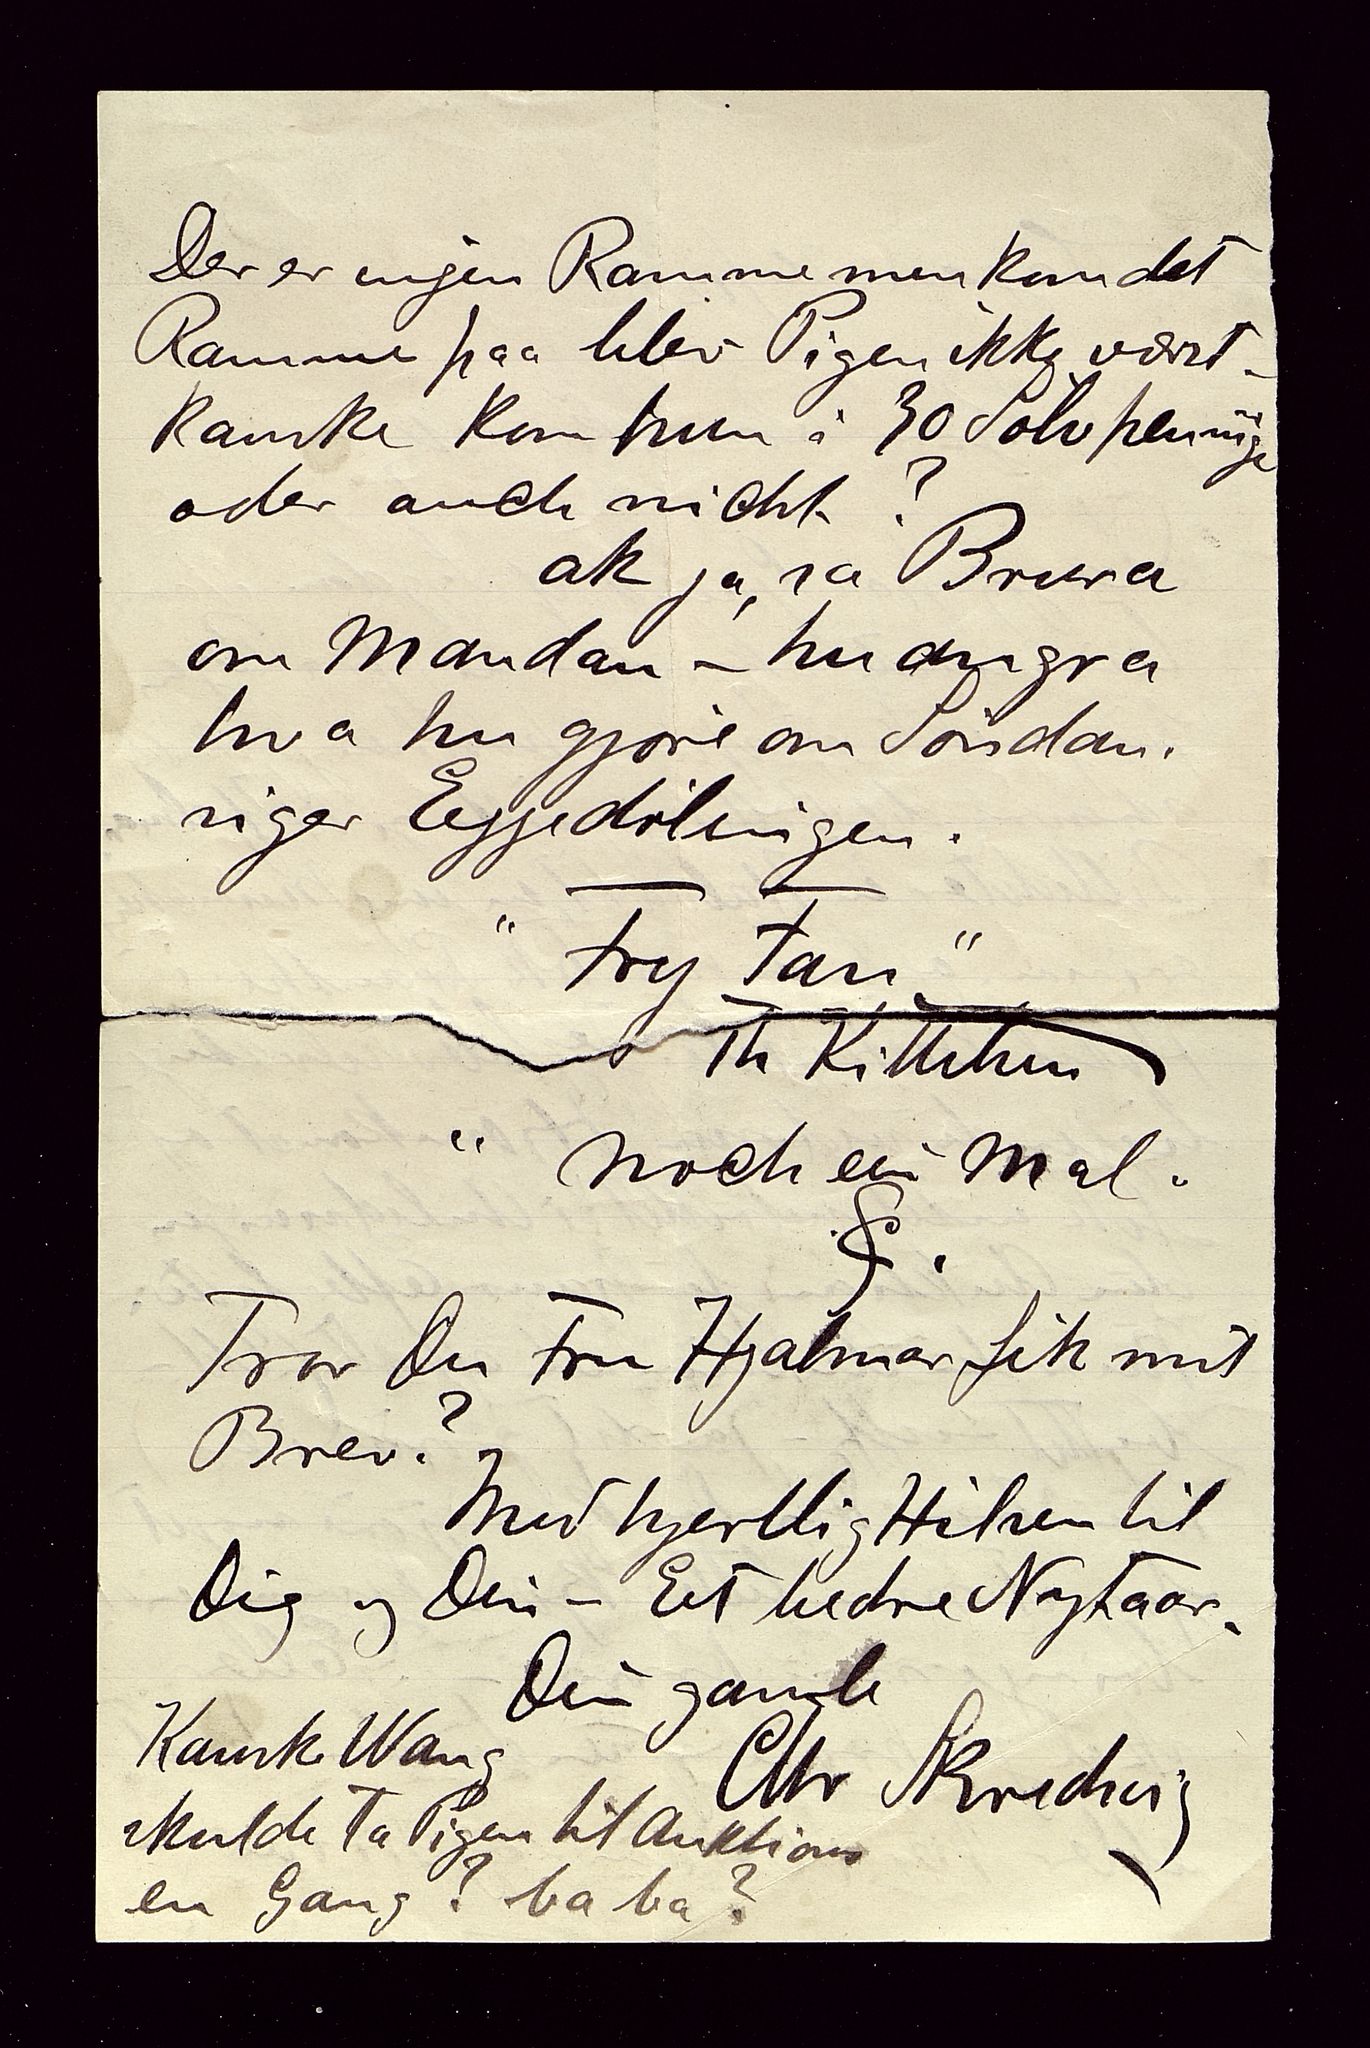 Der er ingen Ramme men kom det
Ramme paa blev Pigen ikke værst –
kanske kom hun i 30 Sølvpenninge
oder auch nicht?
ak ja, sa Brura
om Mandan – hu angra
hva hu gjorie om Söndan.
siger Eggedölingen.
"Fry Tan"
Th Kittelsen
" noch ein Mal.
S.
Tror Du Fru Hjalmar fik mit
Brev?
Med hjertlig Hilsen til
Dig og Din – Eet bedre Nytaar.
Din gamle
Chr Skredsvig
Kanske Wang
skulde ta Pigen til Auktion
en Gang? ba ba?